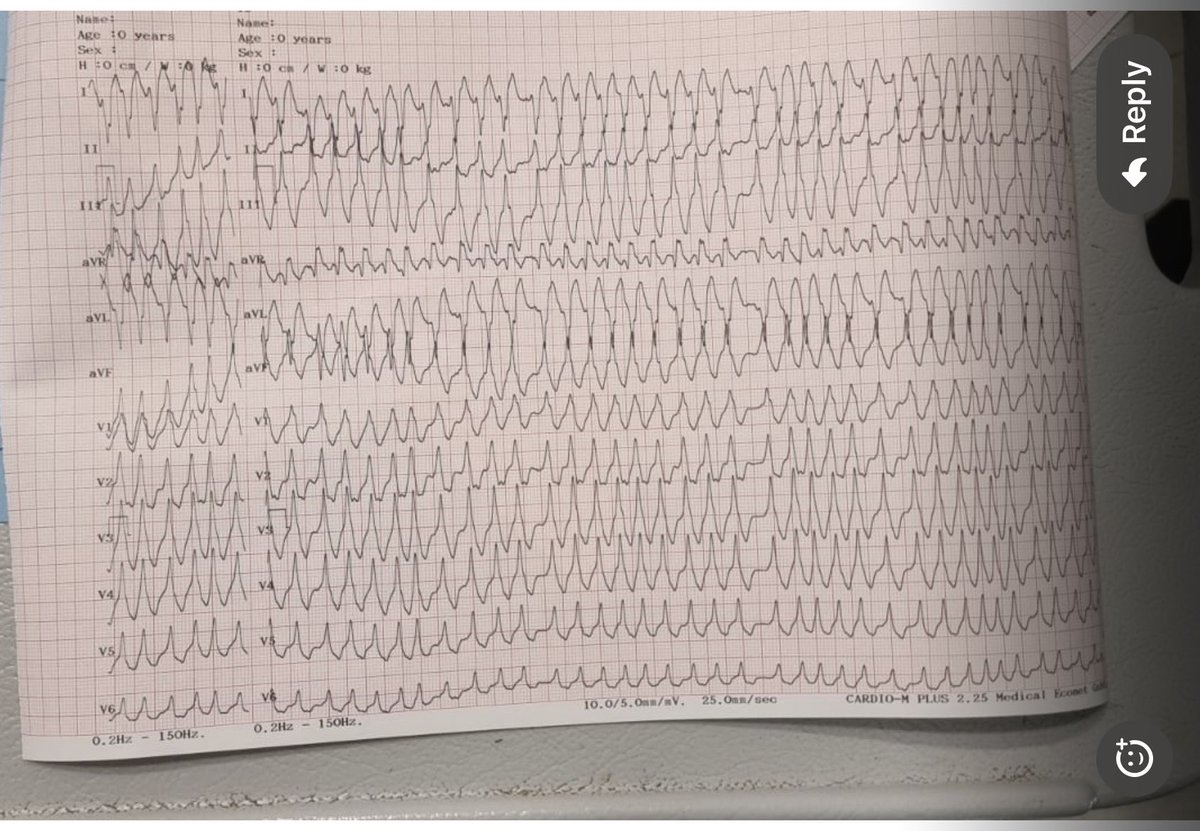 Name:
Age :0 years
Sex :
H :0 cm / W :0 kg
I
II
III
aVR
aVL
aVF
V1
V2
V3
V4
V5
V6
0.2Hz - 150Hz.
Name:
Age :0 years
Sex :
H :0 cm / W :0 kg
I
II
III
aVR
aVL
aVF
V1
V2
V3
V4
V5
V6
0.2Hz - 150Hz.
10.0/5.0mm/mV. 25.0mm/sec
CARDIO-M PLUS 2.25 Medical Econet
Reply